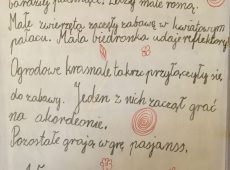 bardziej pachnące. Leczy małe rosną.
Małe zwierzęta zaczęły zabawę w kwiatowym
pałacu. Mała biedronka udaje reflektory!
Ogrodowe krasnale także przyłączyły się
do zabawy. Jeden z nich zaczął grać
na akordeonie.
Pozostałe grają w grę pasjanss.